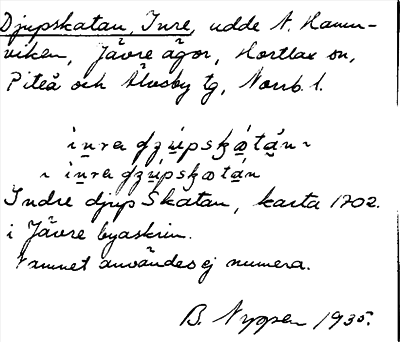 Djupskatan, Inre, udde N. Hamn-
viken, Jävre ägor, Hortlax sn,
Piteå och Älvsby tg, Norrb. l.
Indre djup Skatan, karta 1702.
i Jävre byaskrin.
Namnet användes ej numera.
B. Nyppen 1935.